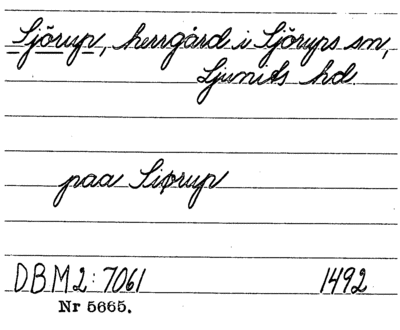 Sjörup, herrgård i Sjörups sn,
Ljunits hd.
paa Siørup
DBM2:7061 1492
Nr 5665.